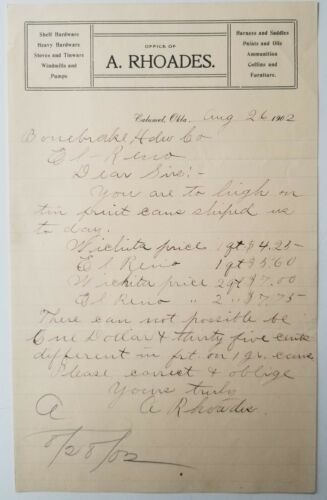 Shelf Hardware
Heavy Hardware
Stoves and Tinware
Windmills and
Pumps
OFFICE OF
A. RHOADES.
Harness and Saddles
Paints and Oils
Ammunition
Coffins and
Furniture.
Calumet, Okla. Aug 26 1902
Bonebrake Hdw Co
El Reno
Dear Sirs:-
You are to high on
tin print cans shiped us
to day.
Wichita price 1 qt $4.25-
El Reno 1 qt $5.60
Wichita price 2 qt $7.00
El Reno " 2 " $7.75
There can not possible be
One Dollar & thirty five cents
different in frt. on 1 qr. cans
Please correct & oblige
Yours truly
A Rhoades.
A
8/28/02